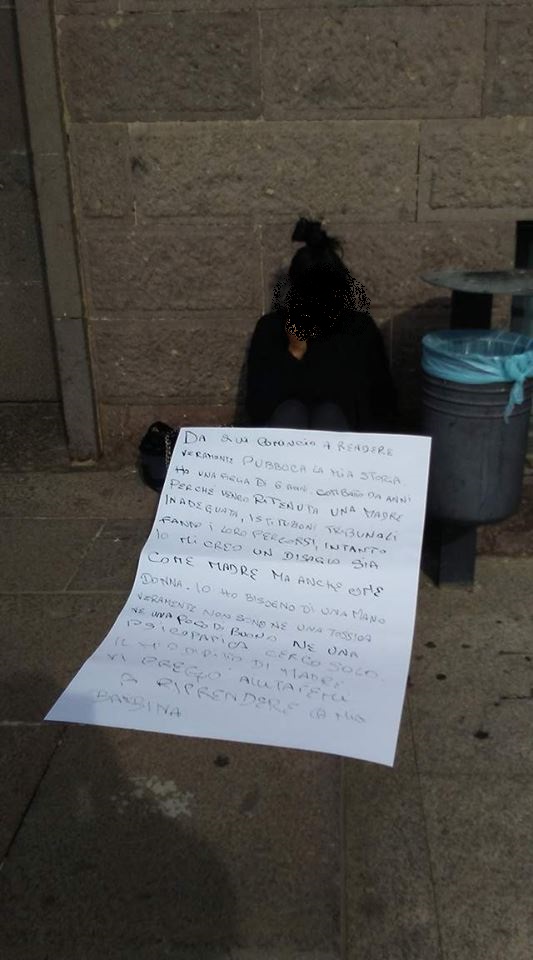 DA QUI COMINCIO A RENDERE
VERAMENTE PUBBLICA LA MIA STORIA.
HO UNA FIGLIA DI 6 ANNI. COMBATTO DA ANNI
PERCHÈ VENGO RITENUTA UNA MADRE
INADEGUATA, ISTITUZIONI TRIBUNALI
FANNO I LORO PERCORSI, INTANTO
IO MI CREO UN DISAGIO SIA
COME MADRE MA ANCHE COME
DONNA. IO HO BISOGNO DI UNA MANO
VERAMENTE NON SONO NE UNA TOSSICA
NE UNA POCO DI BUONO NE UNA
PSICOPATICA CERCO SOLO
IL MIO DIRITTO DI MADRE
VI PREGO AIUTATEMI
A RIPRENDERE LA MIA
BAMBINA